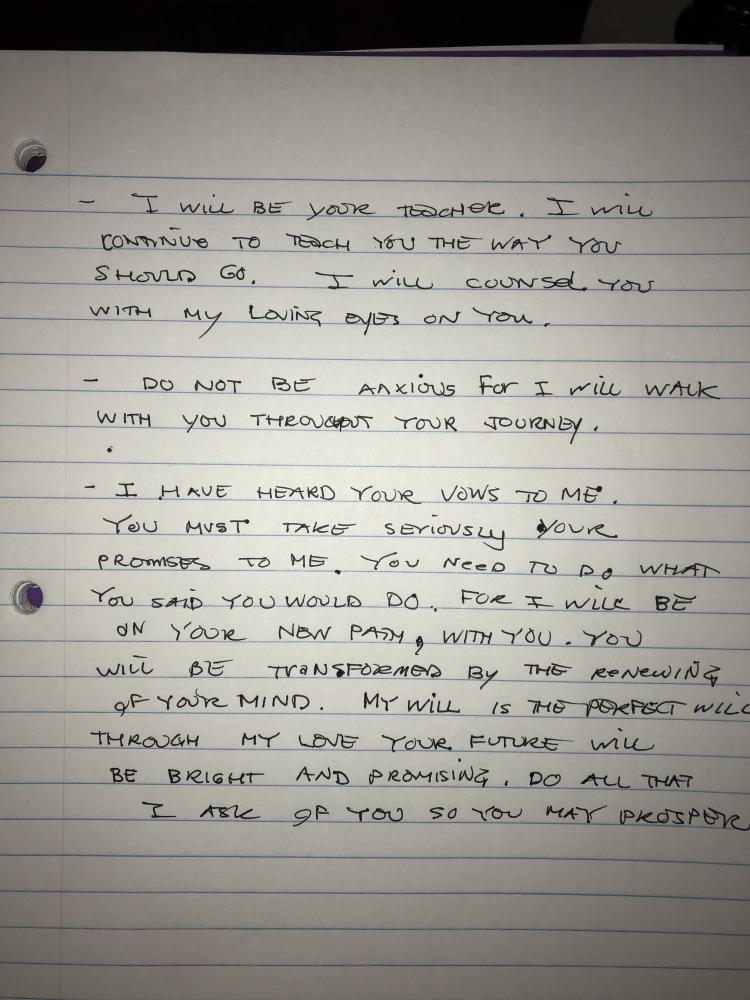 - I WILL BE YOUR TEACHER. I WILL
CONTINUE TO TEACH YOU THE WAY YOU
SHOULD GO. I WILL COUNSEL YOU
WITH MY LOVING EYES ON YOU.
- DO NOT BE ANXIOUS FOR I WILL WALK
WITH YOU THROUGHOUT YOUR JOURNEY.
- I HAVE HEARD YOUR VOWS TO ME.
YOU MUST TAKE SERIOUSLY YOUR
PROMISES TO ME. YOU NEED TO DO WHAT
YOU SAID YOU WOULD DO. FOR I WILL BE
ON YOUR NEW PATH, WITH YOU. YOU
WILL BE TRANSFORMED BY THE RENEWING
OF YOUR MIND. MY WILL IS THE PERFECT WILL
THROUGH MY LOVE YOUR FUTURE WILL
BE BRIGHT AND PROMISING. DO ALL THAT
I ASK OF YOU SO YOU MAY PROSPER